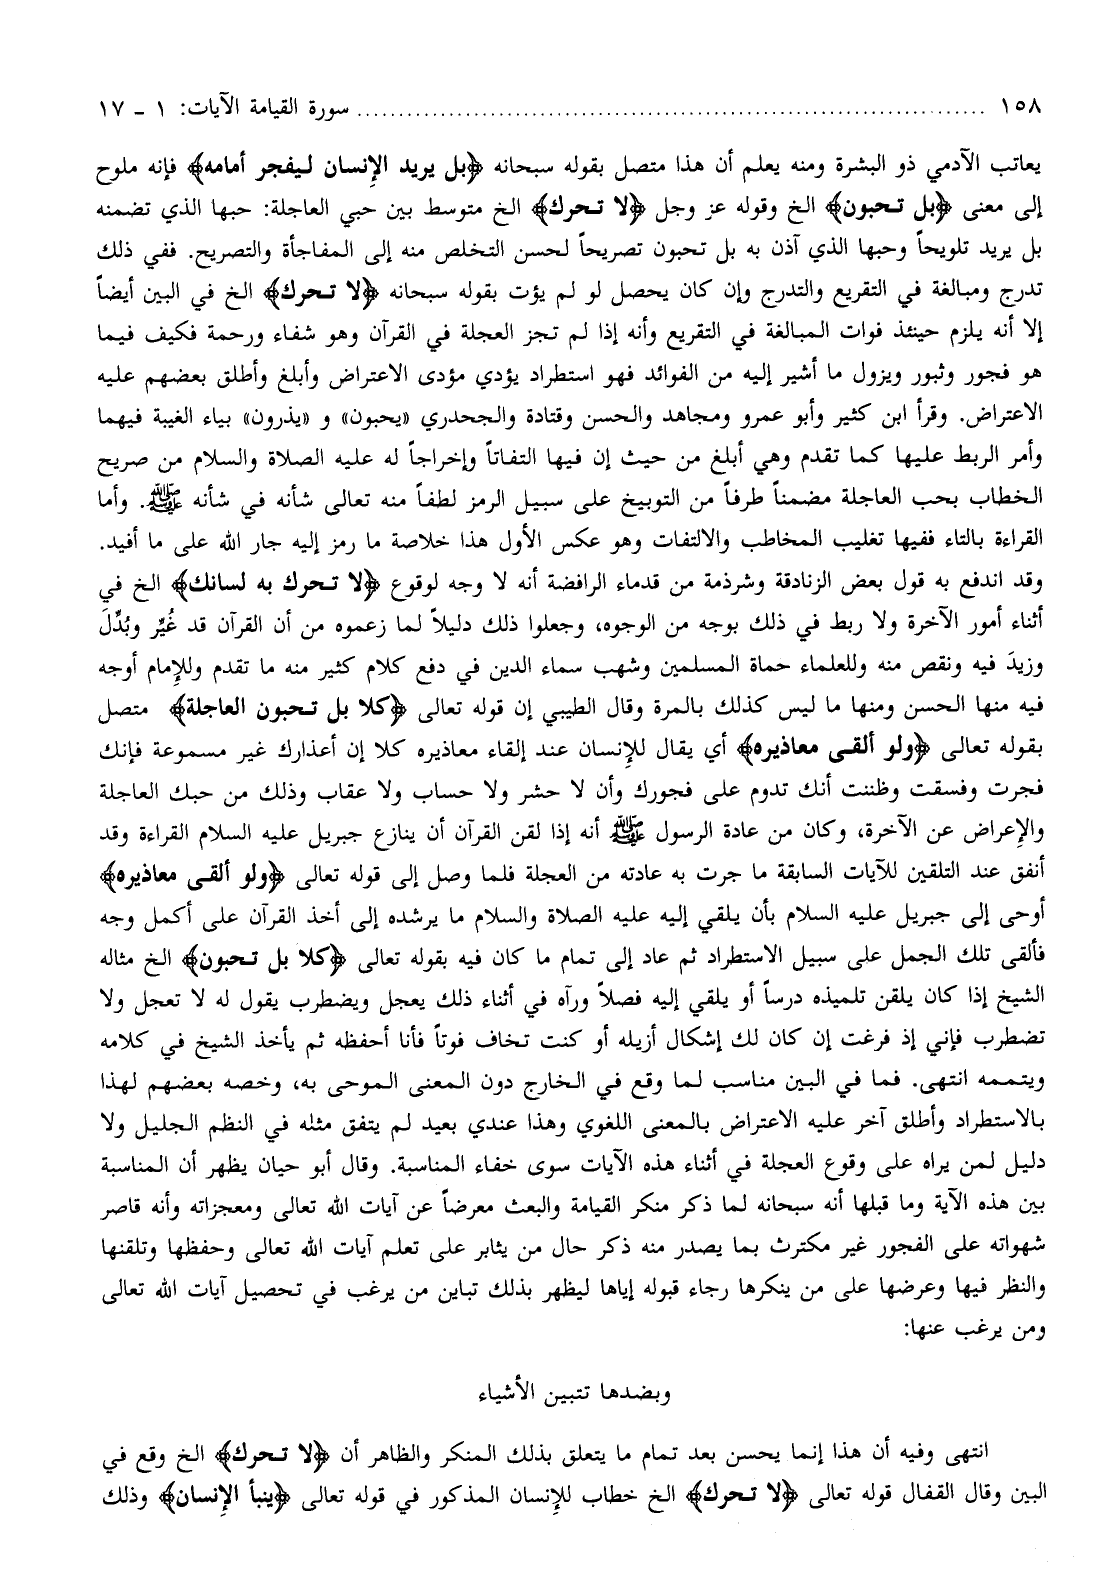 ١٥٨ ........................................ سورة القيامة الآيات: ١ ـ ١٧
يعاتب الآدمي ذو البشرة ومنه يعلم أن هذا متصل بقوله سبحانه ﴿بل يريد الإِنسان ليفجر أمامه﴾ فإنه ملوح
إلى معنى ﴿بل تحبون﴾ الخ وقوله عز وجل ﴿لا تحرك﴾ الخ متوسط بين حبي العاجلة: حبها الذي تضمنه
بل يريد تلويحاً وحبها الذي آذن به بل تحبون تصريحاً لحسن التخلص منه إلى المفاجأة والتصريح. ففي ذلك
تدرج ومبالغة في التقريع والتدرج وإن كان يحصل لو لم يؤت بقوله سبحانه ﴿لا تحرك﴾ الخ في البين أيضاً
إلا أنه يلزم حينئذ فوات المبالغة في التقريع وأنه إذا لم تجز العجلة في القرآن وهو شفاء ورحمة فكيف فيما
هو فجور وثبور ويزول ما أشير إليه من الفوائد فهو استطراد يؤدي مؤدى الاعتراض وأبلغ وأطلق بعضهم عليه
الاعتراض. وقرأ ابن كثير وأبو عمرو ومجاهد والحسن وقتادة والجحدري «يحبون» و «يذرون» بياء الغيبة فيهما
وأمر الربط عليها كما تقدم وهي أبلغ من حيث إن فيها التفاتاً وإخراجاً له عليه الصلاة والسلام من صريح
الخطاب بحب العاجلة مضمناً طرفاً من التوبيخ على سبيل الرمز لطفاً منه تعالى شأنه في شأنه ﷺ. وأما
القراءة بالتاء ففيها تغليب المخاطب والالتفات وهو عكس الأول هذا خلاصة ما رمز إليه جار الله على ما أفيد.
وقد اندفع به قول بعض الزنادقة وشرذمة من قدماء الرافضة أنه لا وجه لوقوع ﴿لا تحرك به لسانك﴾ الخ في
أثناء أمور الآخرة ولا ربط في ذلك بوجه من الوجوه، وجعلوا ذلك دليلاً لما زعموه من أن القرآن قد غُيِّر وبُدِّلَ
وزيدَ فيه ونقص منه وللعلماء حماة المسلمين وشهب سماء الدين في دفع كلام كثير منه ما تقدم وللإمام أوجه
فيه منها الحسن ومنها ما ليس كذلك بالمرة وقال الطيبي إن قوله تعالى ﴿كلا بل تحبون العاجلة﴾ متصل
بقوله تعالى ﴿ولو ألقى معاذيره﴾ أي يقال للإِنسان عند إلقاء معاذيره كلا إن أعذارك غير مسموعة فإنك
فجرت وفسقت وظننت أنك تدوم على فجورك وأن لا حشر ولا حساب ولا عقاب وذلك من حبك العاجلة
والإِعراض عن الآخرة، وكان من عادة الرسول ﷺ أنه إذا لقن القرآن أن ينازع جبريل عليه السلام القراءة وقد
أنفق عند التلقين للآيات السابقة ما جرت به عادته من العجلة فلما وصل إلى قوله تعالى ﴿ولو ألقى معاذيره﴾
أوحى إلى جبريل عليه السلام بأن يلقي إليه عليه الصلاة والسلام ما يرشده إلى أخذ القرآن على أكمل وجه
فألقى تلك الجمل على سبيل الاستطراد ثم عاد إلى تمام ما كان فيه بقوله تعالى ﴿كلا بل تحبون﴾ الخ مثاله
الشيخ إذا كان يلقن تلميذه درساً أو يلقي إليه فصلاً ورآه في أثناء ذلك يعجل ويضطرب يقول له لا تعجل ولا
تضطرب فإني إذ فرغت إن كان لك إشكال أزيله أو كنت تخاف فوتاً فأنا أحفظه ثم يأخذ الشيخ في كلامه
ويتممه انتهى. فما في البين مناسب لما وقع في الخارج دون المعنى الموحى به، وخصه بعضهم لهذا
بالاستطراد وأطلق آخر عليه الاعتراض بالمعنى اللغوي وهذا عندي بعيد لم يتفق مثله في النظم الجليل ولا
دليل لمن يراه على وقوع العجلة في أثناء هذه الآيات سوى خفاء المناسبة. وقال أبو حيان يظهر أن المناسبة
بين هذه الآية وما قبلها أنه سبحانه لما ذكر منكر القيامة والبعث معرضاً عن آيات الله تعالى ومعجزاته وأنه قاصر
شهواته على الفجور غير مكترث بما يصدر منه ذكر حال من يثابر على تعلم آيات الله تعالى وحفظها وتلقنها
والنظر فيها وعرضها على من ينكرها رجاء قبوله إياها ليظهر بذلك تباين من يرغب في تحصيل آيات الله تعالى
ومن يرغب عنها:
وبضدها تتبين الأشياء
انتهى وفيه أن هذا إنما يحسن بعد تمام ما يتعلق بذلك المنكر والظاهر أن ﴿لا تحرك﴾ الخ وقع في
البين وقال القفال قوله تعالى ﴿لا تحرك﴾ الخ خطاب للإِنسان المذكور في قوله تعالى ﴿ينبأ الإِنسان﴾ وذلك